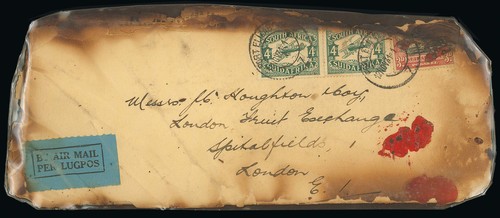 4 SOUTH AFRICA 4
SUIDAFRIKA
4 SOUTH AFRICA 4
SUIDAFRIKA
Messrs Houghton
London Fruit Exchange
Spitalfields
London
E.
BY AIR MAIL
PER LUGPOS